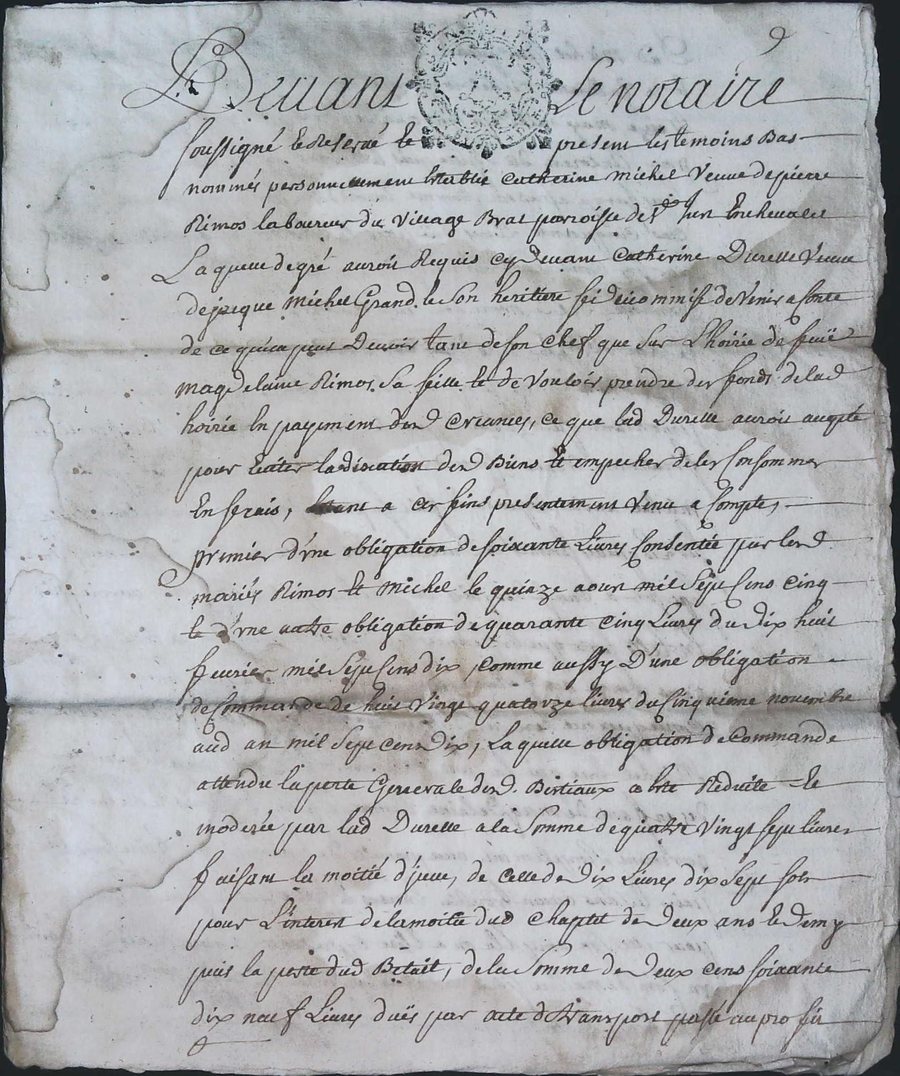 Devant Le notaire
soussigné et Reservé et present les temoins Bas
nommés personnellement Establie Catherine michel Veuve de pierre
Rimos laboureur du Village Brat parroisse de St Jun En chevalet
Laquelle de gré auroit Requis cy devant Catherine Durelle Veuve
de jacque Michel Grand, et son heritiere fideicommise de Venir a Conte
de ce qui ça peut Devoir tant de son Chef que sur L'hoirie de feüe
magdelaine Rimos Sa fille et de Vouloir prendre des fonds de lad
hoirie En payement desd Creances, ce que lad Durelle auroit accepté
pour Eviter la discution desd Biens et empecher de les Consommer
En fraix, Etant a ces fins presentement Venu a Compte,
premier d'vne obligation de soixante Livres Consentée par lesd
mariés Rimos et Michel le quinze aoust mil Sept Cens Cinq
et d'vne autre obligation de quarante Cinq Livres du Dix huit
feurier mil Sept Cens dix, comme aussy D'une obligation
de Commande de huit Vingt quatorze livres du Cinquieme novembre
aud an mil Sept cens Dix, laquelle obligation de Commande
attendu la perte Generale desd Bestiaux a Eté Reduite et
moderée par lad Durelle a la Somme de quatre Vingt Sept Livres
faisant la moitié d'jcelle, de celle de Dix Livres dix Sept sols
pour L'interest de la moitié dud Chaptel de Deux ans et Demy
puis la perte dud Betail, de la Somme de Deux cens soixante
dix neuf Livres Duës par acte de Transport passé au profit